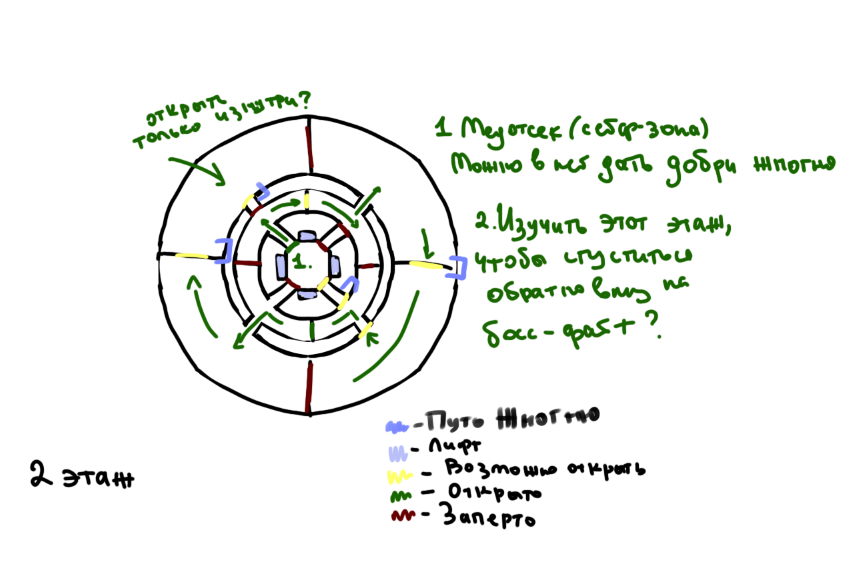 открыть
только изнутри?
1 Медотсек (сейф-зона)
Можно в нет дать добри жпогня
2. Изучить этот этаж,
чтобы спуститься
обратно вниз на
босс-файт?
1.
- Путь
- Лифт
- Возможно открыть
- Открыто
- Заперто
2 этаж